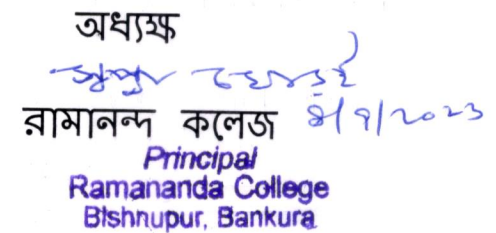 অধ্যক্ষ
স্বপ্না ঘোড়ই
রামানন্দ কলেজ ৪/৭/২০২৩
Principal
Ramananda College
Bishnupur, Bankura